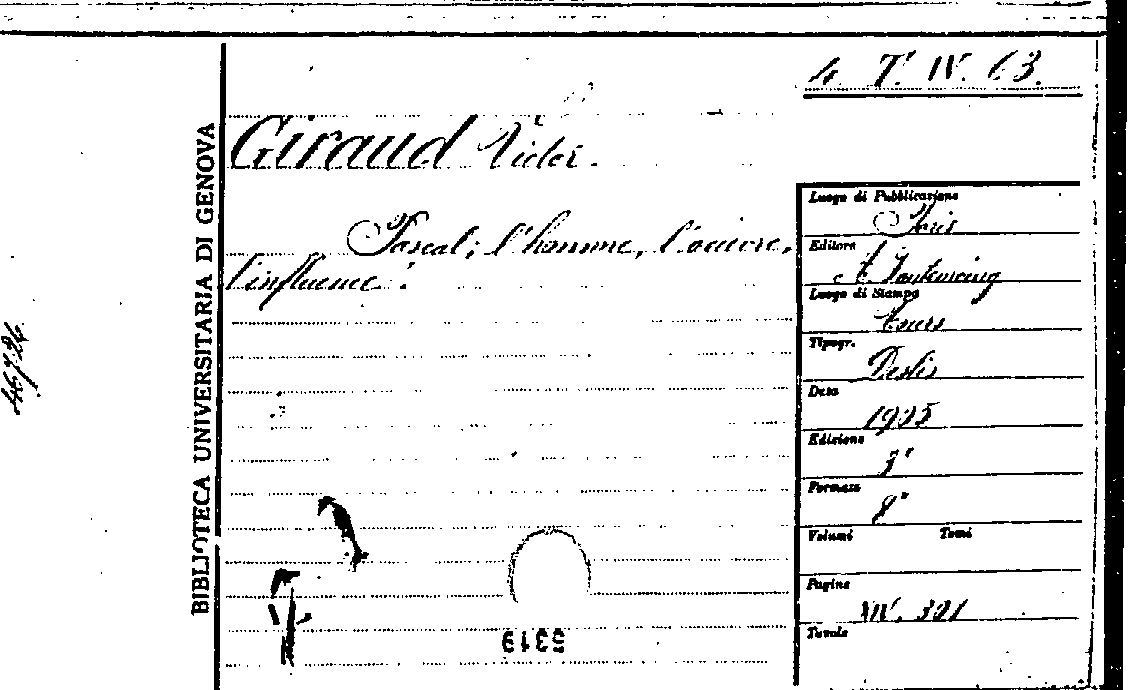 4 T. IV. 63.
Giraud Victor.
Pascal; l'homme, l'oeuvre,
l'influence.
BIBLIOTECA UNIVERSITARIA DI GENOVA
46724
Luogo di Pubblicazione
Paris
Editore
A. Fontemoing
Luogo di Stampa
Tours
Tipogr.
Deslis
Data
1905
Edizione
3ª
Formato
8°
Volumi Tomi
Pagine
XIV. 321
Tavole
5319